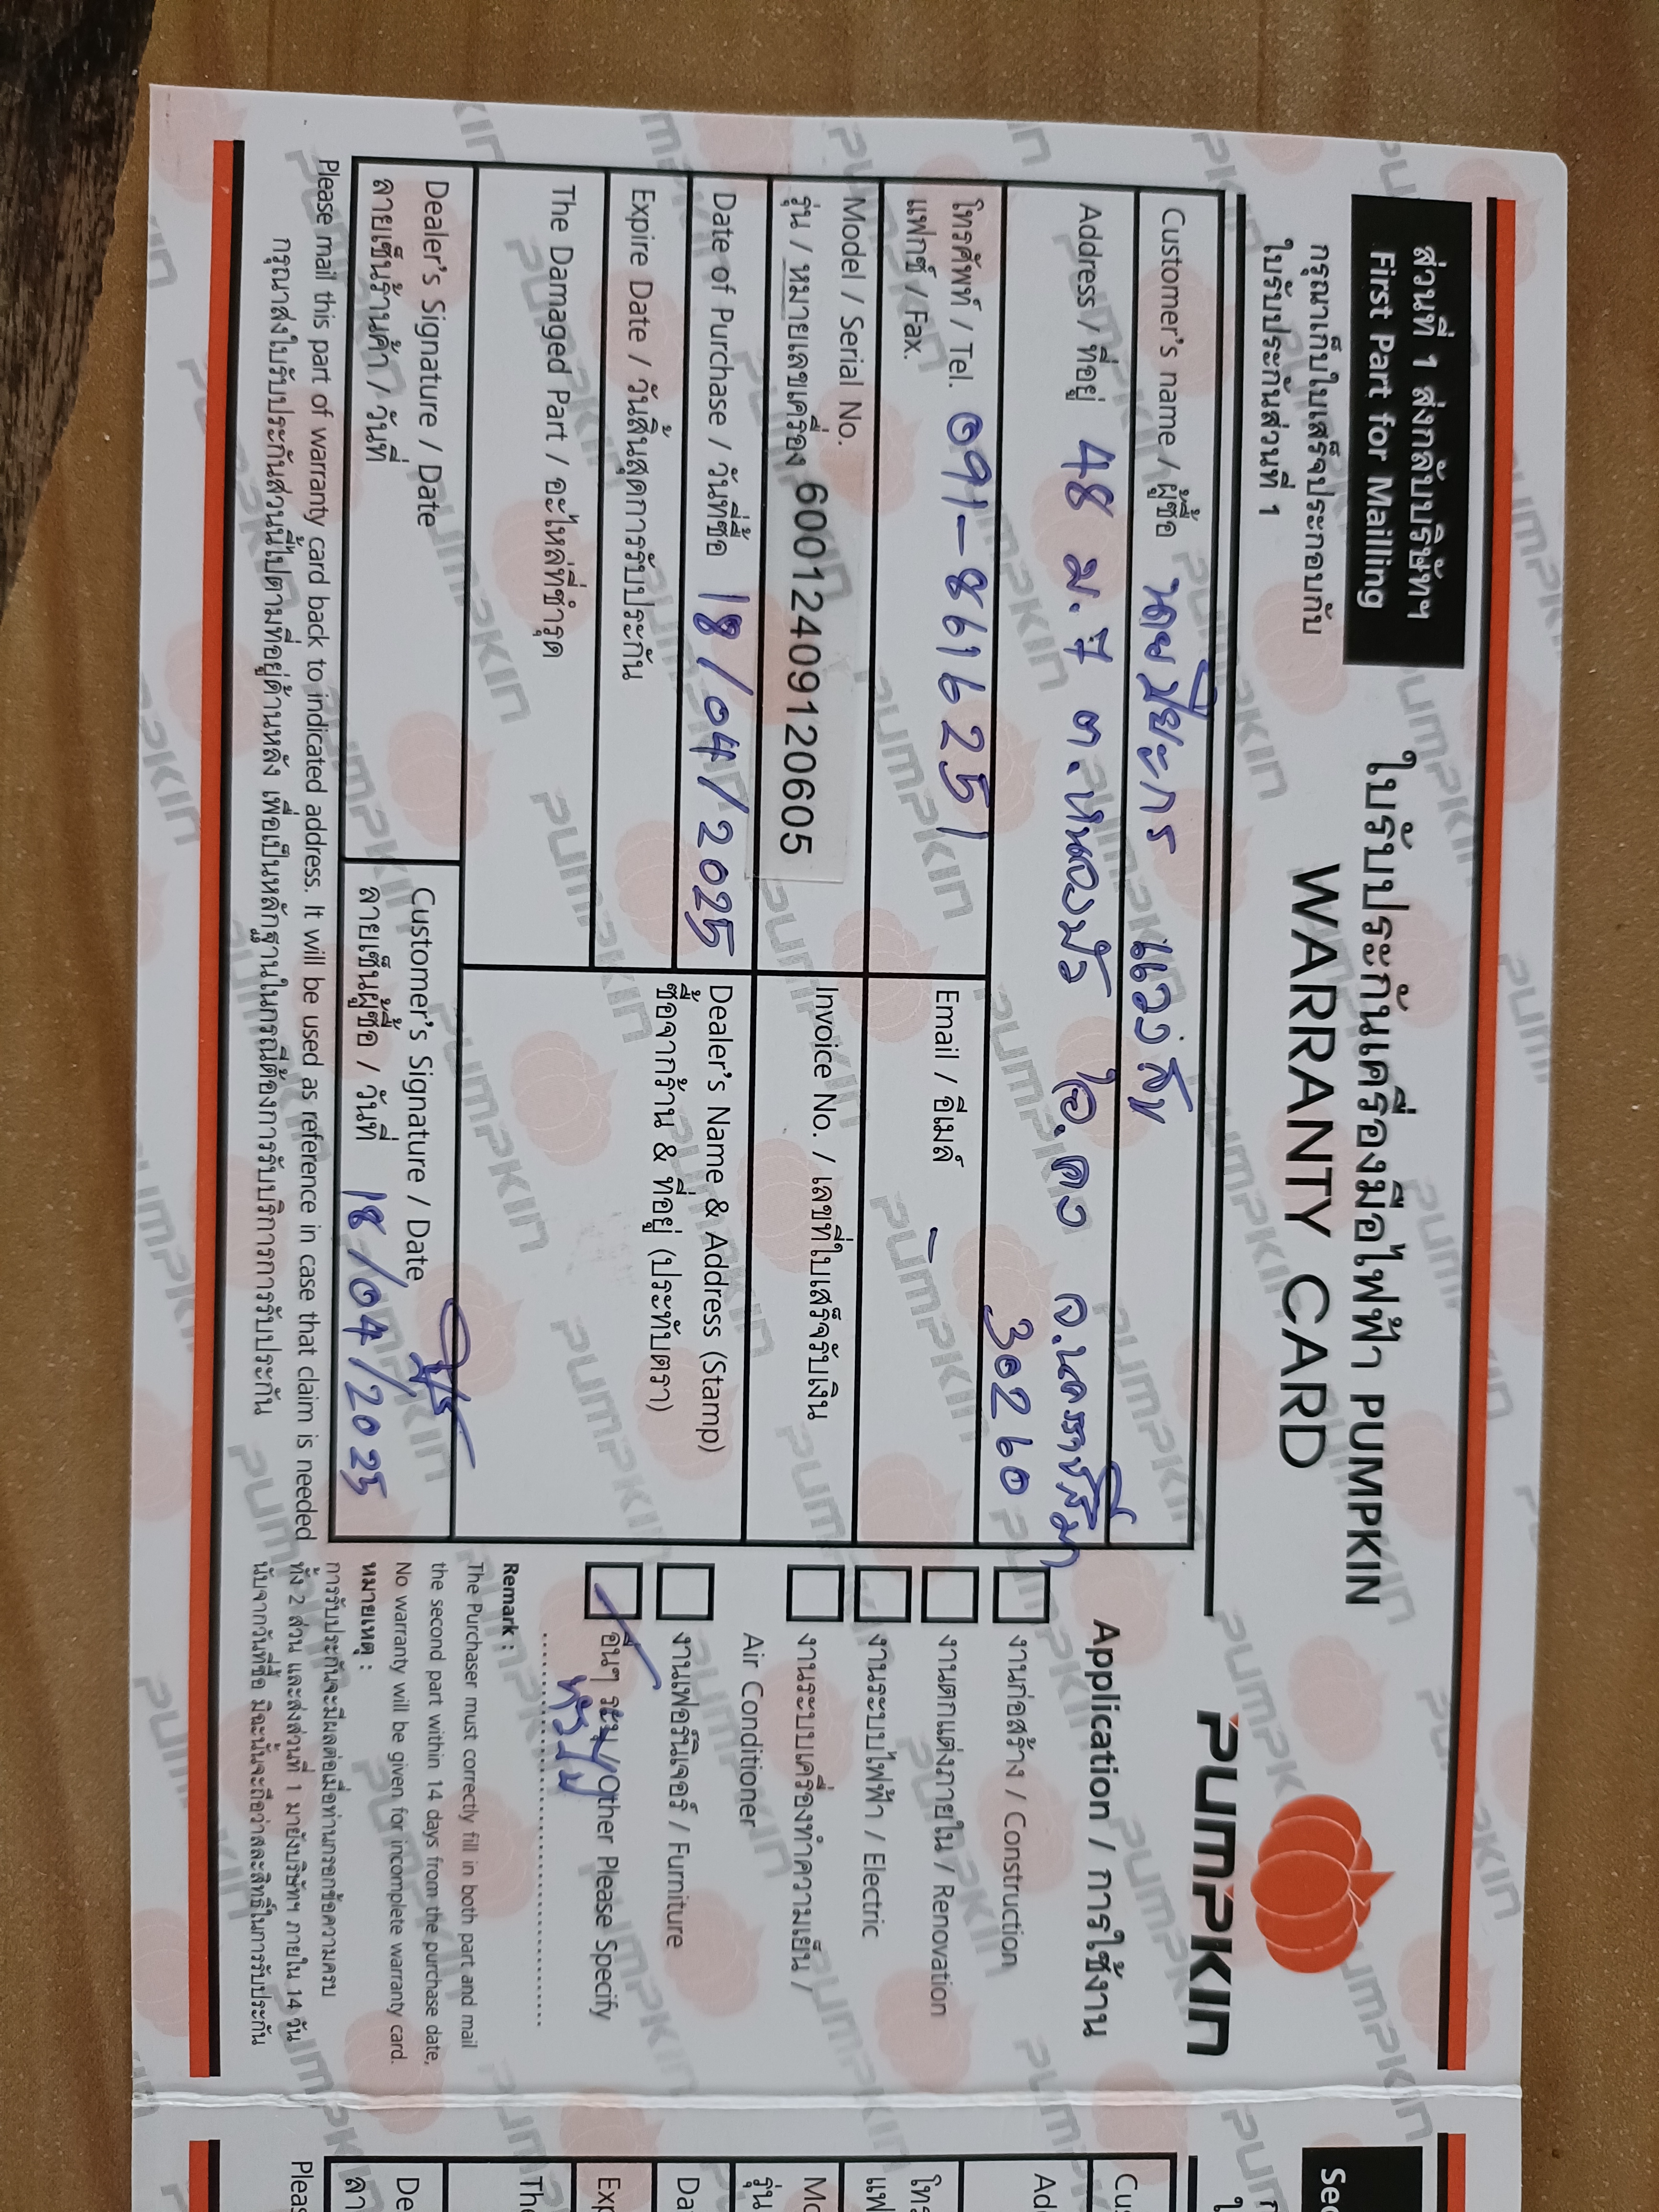 ส่วนที่ 1 ส่งกลับบริษัทฯ
First Part for Mailling
กรุณาเก็บใบเสร็จประกอบกับ
ใบรับประกันส่วนที่ 1
ใบรับประกันเครื่องมือไฟฟ้า PUMPKIN
WARRANTY CARD
PUMPKIN
Customer's name / ผู้ซื้อ นายปิยะกร แถวสันเทียะ
Address / ที่อยู่ 48 ม.7 ต.หนองบัว อ.คง จ.นครราชสีมา
30260
โทรศัพท์ / Tel. 091-8616251
แฟกซ์ /Fax.
Email / อีเมล์ -
Model / Serial No.
รุ่น / หมายเลขเครื่อง 60012409120605
Invoice No. / เลขที่ใบเสร็จรับเงิน
Date of Purchase / วันที่ซื้อ 18/04/2025
Dealer's Name & Address (Stamp)
ซื้อจากร้าน & ที่อยู่ (ประทับตรา)
Expire Date / วันสิ้นสุดการรับประกัน
The Damaged Part / อะไหล่ที่ชำรุด
Dealer's Signature / Date
ลายเซ็นร้านค้า / วันที่
Customer's Signature / Date
ลายเซ็นผู้ซื้อ / วันที่ 18/04/2025
Please mail this part of warranty card back to indicated address. It will be used as reference in case that claim is needed
กรุณาส่งใบรับประกันส่วนนี้ไปตามที่อยู่ด้านหลัง เพื่อเป็นหลักฐานในกรณีต้องการรับบริการการรับประกัน
Application / การใช้งาน
งานก่อสร้าง / Construction
งานตกแต่งภายใน / Renovation
งานระบบไฟฟ้า / Electric
งานระบบเครื่องทำความเย็น /
Air Conditioner
งานเฟอร์นิเจอร์ / Furniture
อื่นๆ ระบุ/Other Please Specify
Remark :
The Purchaser must correctly fill in both part and mail
the second part within 14 days from the purchase date,
No warranty will be given for incomplete warranty card.
หมายเหตุ :
การรับประกันจะมีผลต่อเมื่อท่านกรอกข้อความครบ
ทั้ง 2 ส่วน และส่งส่วนที่ 1 มายังบริษัทฯ ภายใน 14 วัน
นับจากวันที่ซื้อ มิฉะนั้นจะถือว่าสละสิทธิ์ในการรับประกัน